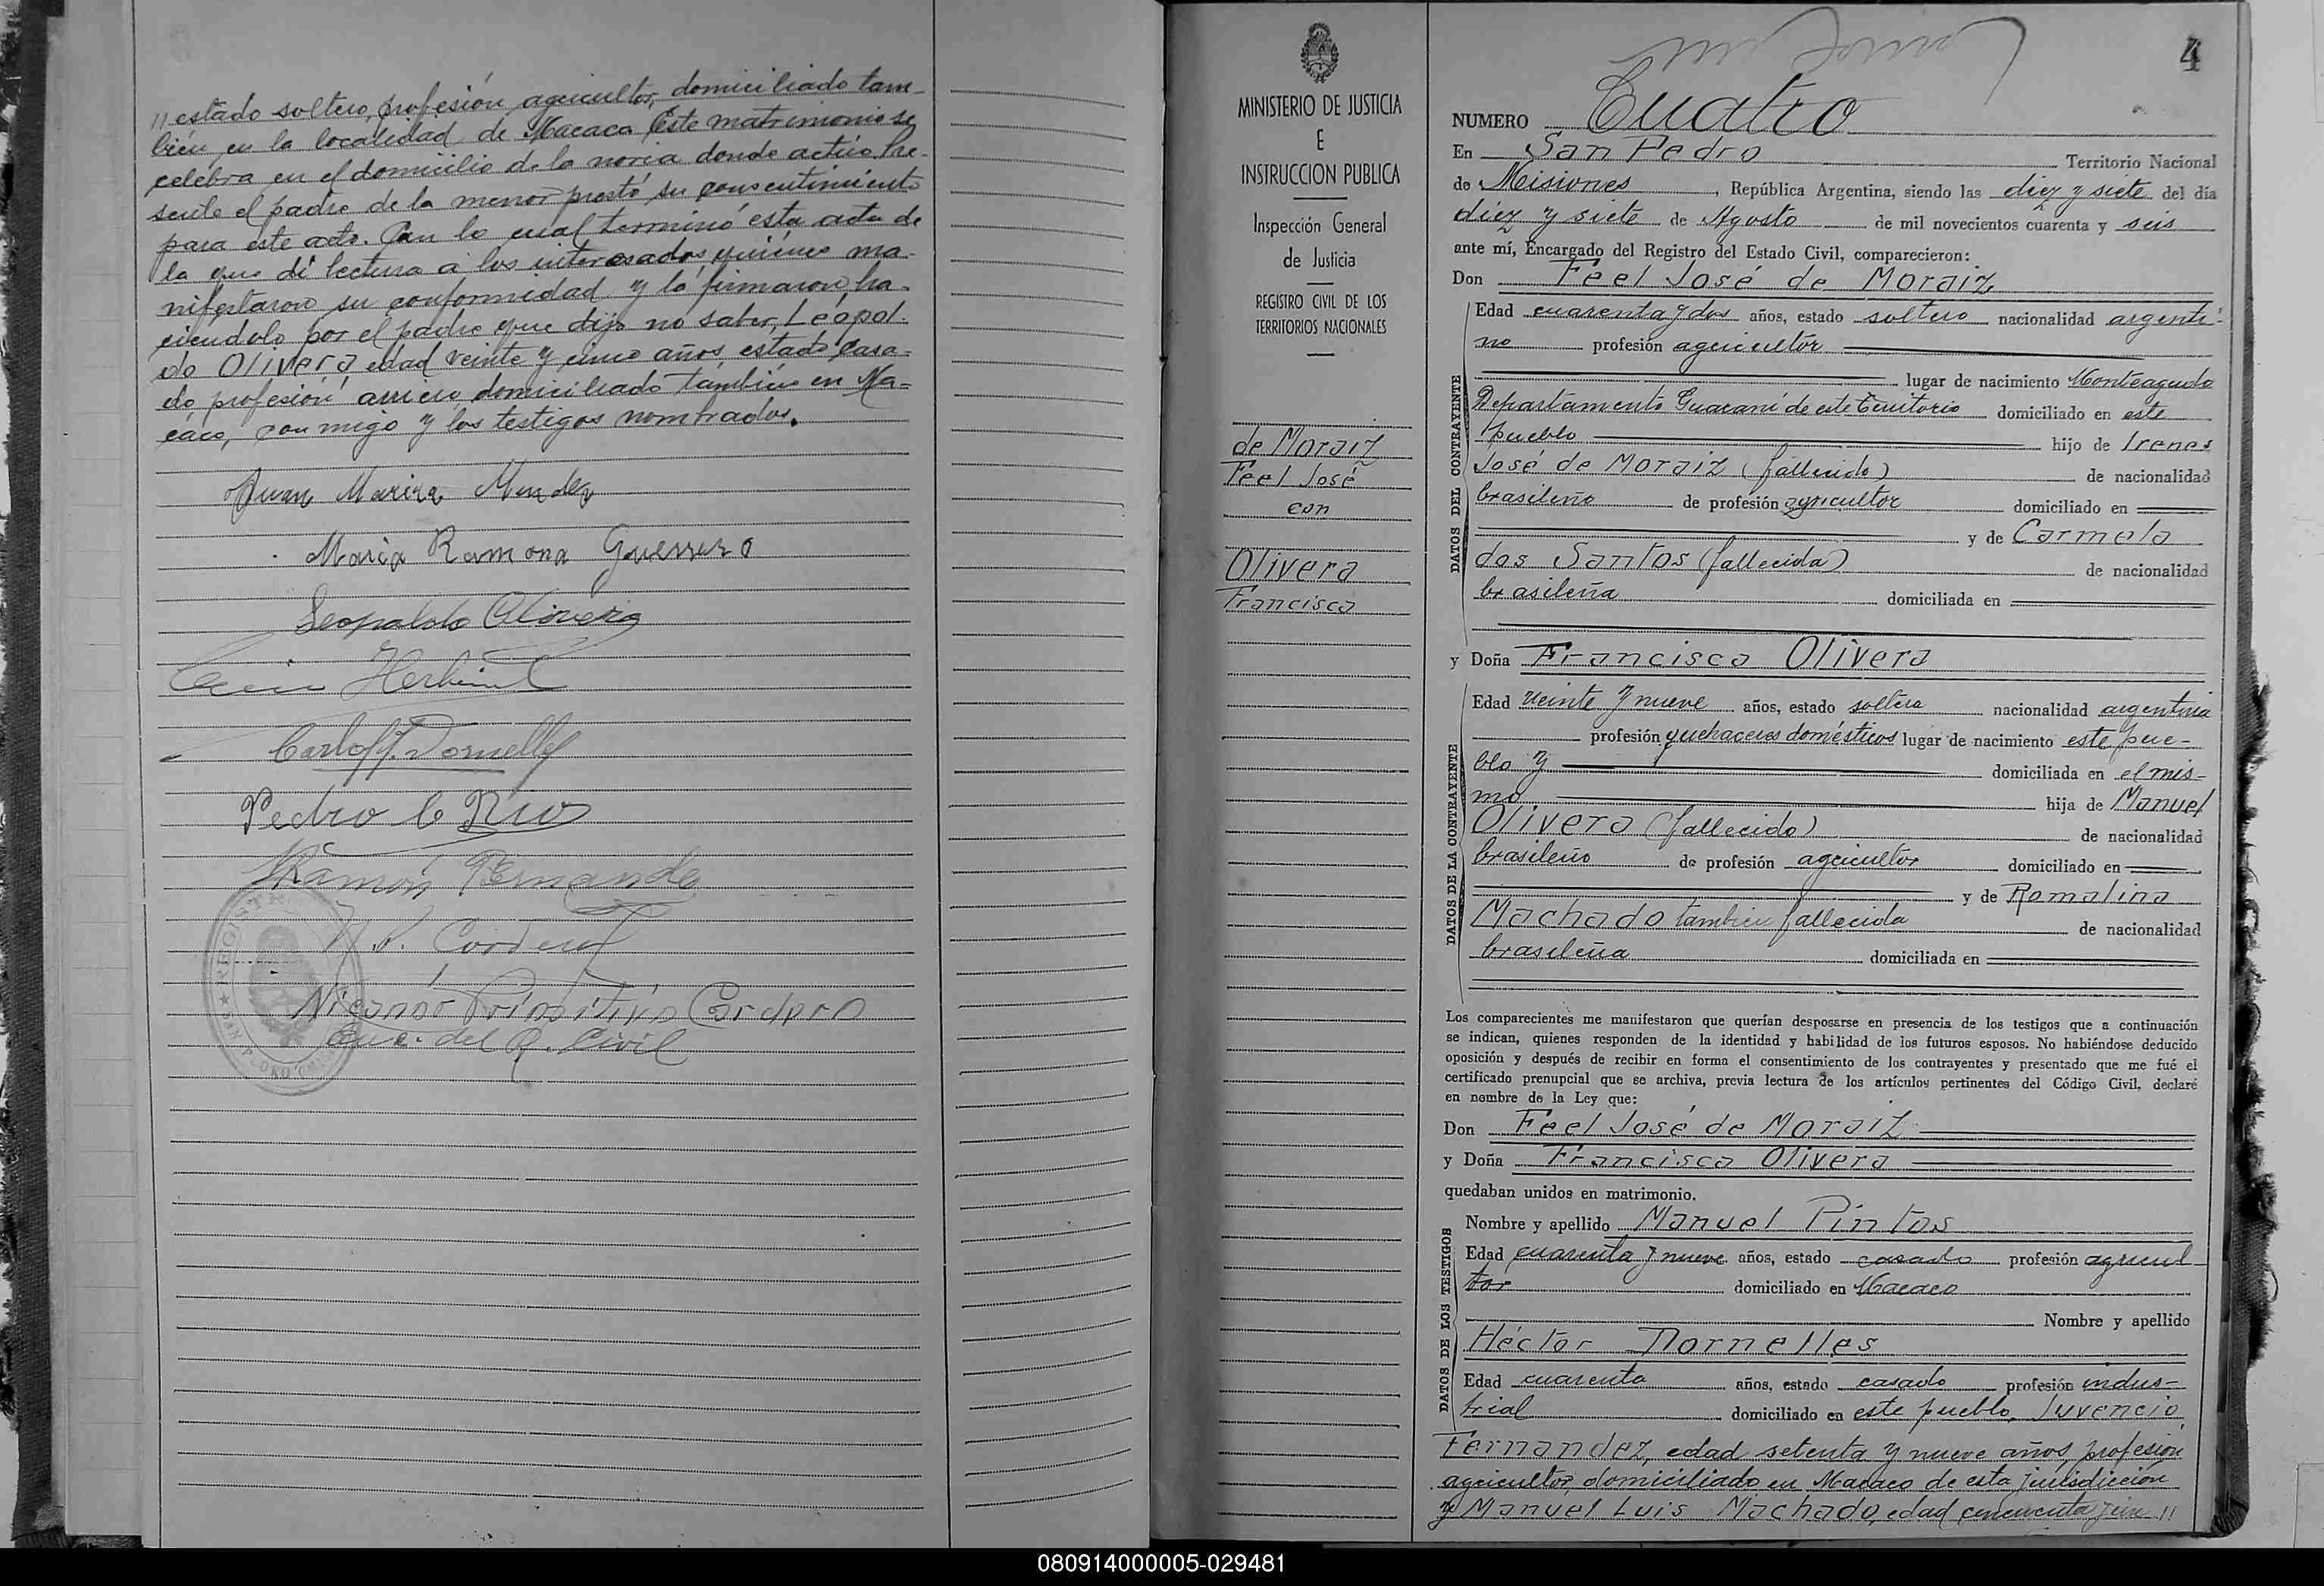 // estado soltero, profesión agricultor, domiciliado tam-
bién en la localidad de Macaca Este matrimonio se
celebra en el domicilio de la novia donde actúo, pre-
sente el padre de la menor prestó su consentimiento
para este acto. Con lo cual terminó esta acta de
la que dí lectura a los interesados quienes ma-
nifestaron su conformidad y la firmaron, ha-
ciendolo por el padre que dijo no saber, Leopol-
do Olivera edad veinte y cinco años estado casa-
do profesión arriero domiciliado también en Ma-
caco, conmigo y los testigos nombrados.
Juan Mendez
Maria Ramona Guerrero
Leopoldo Olivera
Carlos Dornelles
Pedro Rios
Ramón
N. P. Cordero
Nicanor Primitivo Cordero
Enc. del R. Civil
MINISTERIO DE JUSTICIA
E
INSTRUCCION PUBLICA
Inspección General
de Justicia
REGISTRO CIVIL DE LOS
TERRITORIOS NACIONALES
de Moraiz
Feel José
con
Olivera
Francisca
4
NUMERO Cuatro
En San Pedro Territorio Nacional
de Misiones, República Argentina, siendo las diez y siete del día
diez y siete de Agosto de mil novecientos cuarenta y seis
ante mí, Encargado del Registro del Estado Civil, comparecieron:
Don Feel José de Moraiz
DATOS DEL CONTRAYENTE
Edad cuarenta y dos años, estado soltero nacionalidad argenti-
no profesión agricultor
lugar de nacimiento Monteagudo
Departamento Guaraní de este Territorio domiciliado en este
pueblo hijo de Irenes
José de Moraiz (fallecido) de nacionalidad
brasileño de profesión agricultor domiciliado en
y de Carmela
dos Santos (fallecida) de nacionalidad
brasileña domiciliada en
y Doña Francisca Olivera
DATOS DE LA CONTRAYENTE
Edad veinte y nueve años, estado soltera nacionalidad argentina
profesión quehaceres domésticos lugar de nacimiento este pue-
blo y domiciliada en el mis-
mo hija de Manuel
Olivera (fallecido) de nacionalidad
brasileño de profesión agricultor domiciliado en
y de Romalina
Machado también fallecida de nacionalidad
brasileña domiciliada en
Los comparecientes me manifestaron que querían desposarse en presencia de los testigos que a continuación
se indican, quienes responden de la identidad y habilidad de los futuros esposos. No habiéndose deducido
oposición y después de recibir en forma el consentimiento de los contrayentes y presentado que me fué el
certificado prenupcial que se archiva, previa lectura de los artículos pertinentes del Código Civil, declaré
en nombre de la Ley que:
Don Feel José de Moraiz
y Doña Francisca Olivera
quedaban unidos en matrimonio.
DATOS DE LOS TESTIGOS
Nombre y apellido Manuel Pintos
Edad cuarenta y nueve años, estado casado profesión agricul-
tor domiciliado en Macaco
Nombre y apellido
Héctor Dornelles
Edad cuarenta años, estado casado profesión indus-
trial domiciliado en este pueblo, Juvencio
Fernandez, edad setenta y nueve años, profesión
agricultor, domiciliado en Macaco de esta jurisdicción
y Manuel Luis Machado, edad cincuenta y un //
080914000005-029481